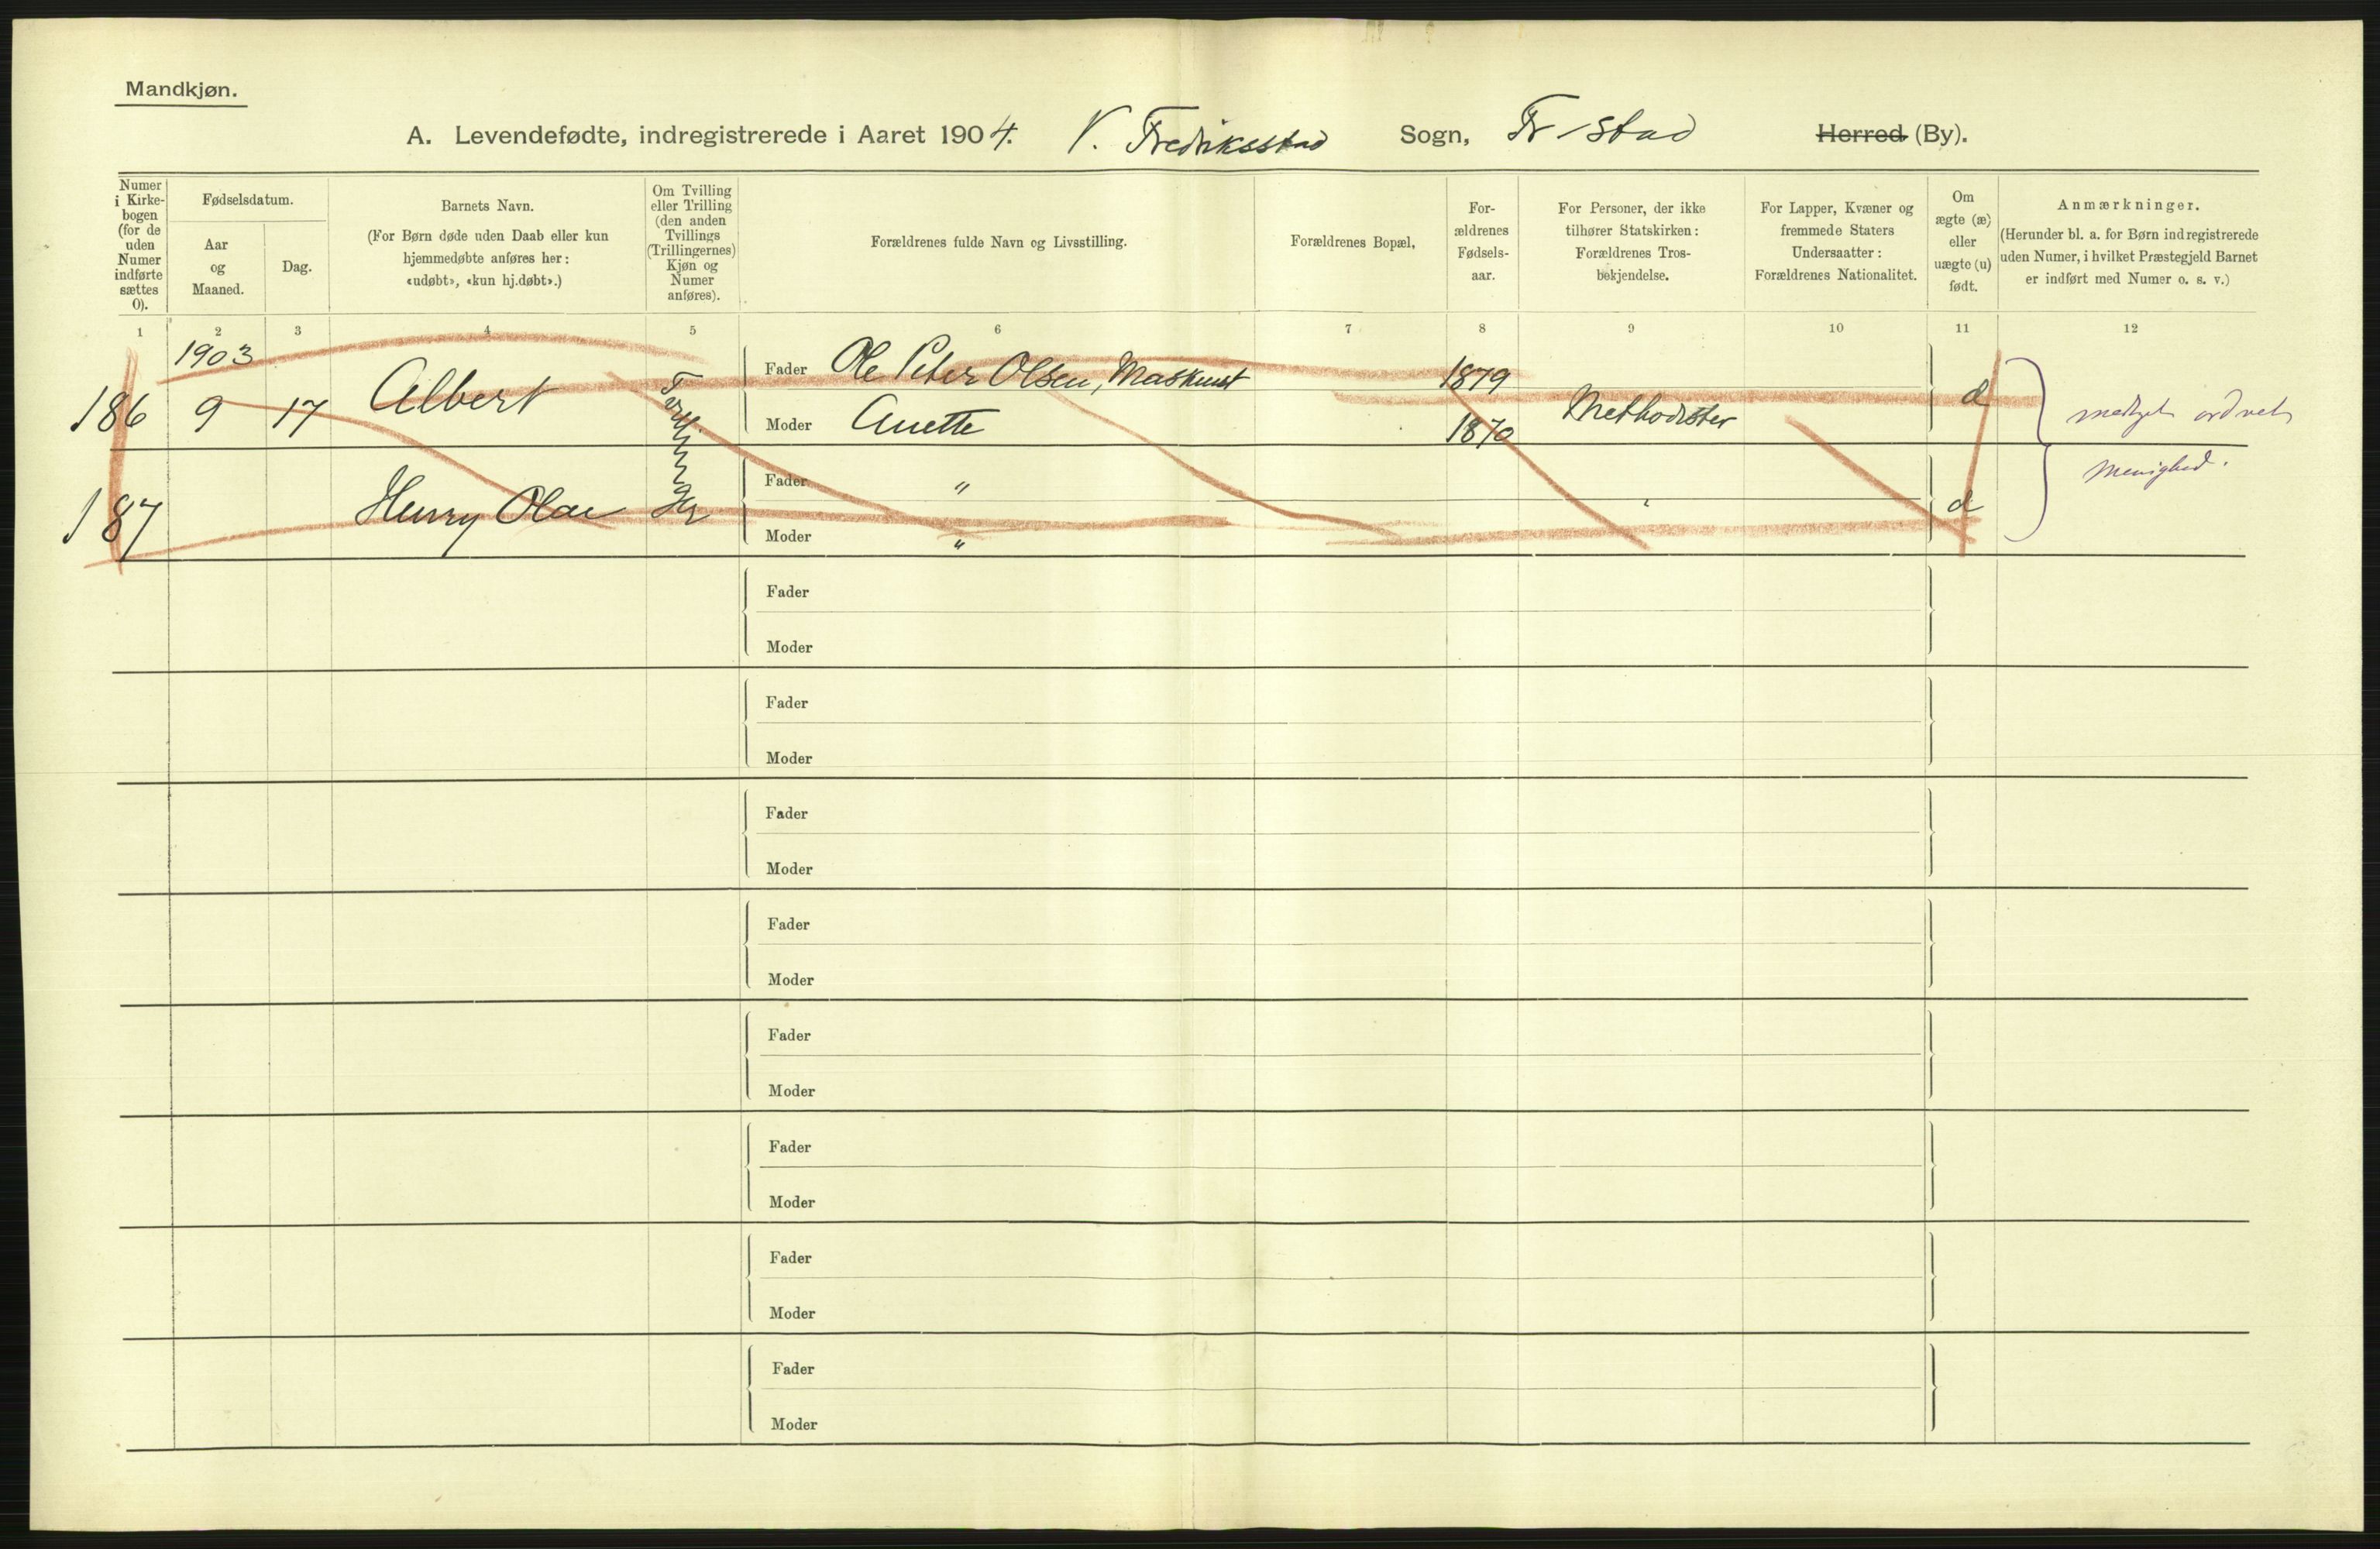 Mandkjøn.
A. Levendefødte, indregistrerede i Aaret 1904. V. Fredriksstad Sogn, Fr-stad Herred (By).
Numer i Kirke-bogen (for de uden Numer indførte sættes 0).
Fødselsdatum.
Aar og Maaned.
Dag.
Barnets Navn.
(For Børn døde uden Daab eller kun
hjemmedøbte anføres her:
«udøbt», «kun hj.døbt».)
Om Tvilling
eller Trilling
(den anden
Tvillings
(Trillingernes)
Kjøn og
Numer
anføres).
Forældrenes fulde Navn og Livsstilling.
Forældrenes Bopæl,
For-
ældrenes
Fødsels-
aar.
For Personer, der ikke
tilhører Statskirken:
Forældrenes Tros-
bekjendelse.
For Lapper, Kvæner og
fremmede Staters
Undersaatter:
Forældrenes Nationalitet.
Om
ægte (æ)
eller
uægte (u)
født.
Anmærkninger.
(Herunder bl. a. for Børn indregistrerede
uden Numer, i hvilket Præstegjeld Barnet
er indført med Numer o. s. v.)
1 2 3 4 5 6 7 8 9 10 11 12
1903
186 9 17 Albert Tvillinger
Fader Ole Peter Olsen, Maskinist 1879
Moder Anette 1870 Methodister
187 Henry Olav
Fader "
Moder "
menighed.
Fader
Moder
Fader
Moder
Fader
Moder
Fader
Moder
Fader
Moder
Fader
Moder
Fader
Moder
Fader
Moder